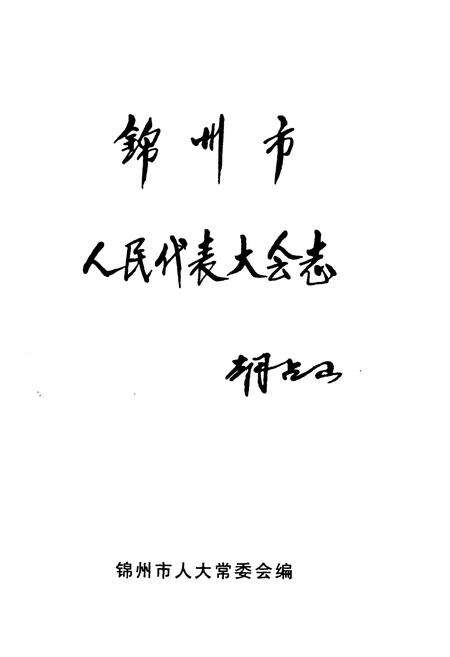 錦州市
人民代表大会志
胡占山
锦州市人大常委会编